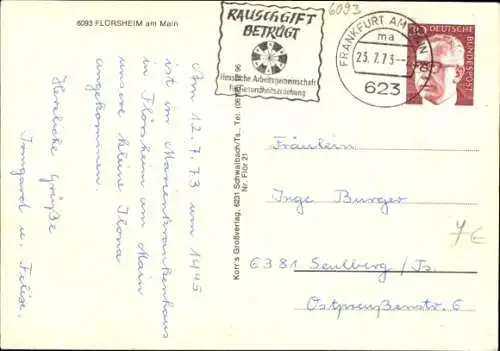 6093 FLÖRSHEIM am Main
6093
RAUSCHGIFT
BETRÜGT
Hessische Arbeitsgemeinschaft
für Gesundheitserziehung
FRANKFURT AM MAIN
ma
23.7.73
623
DEUTSCHE
BUNDESPOST
Am 12.7.73 um 14.45
ist im Marienkrankenhaus
in Flörsheim am Main
unsere kleine Ilona
angekommen.
Herzliche Grüße
Irmgard u. Felix.
Korr's Großverlag, 6231 Schwalbach/Ts., Tel.
Nr. Flör 21
Fräulein
Inge Burger
6381 Seulberg /Ts.
Ostpreußenstr. 6
7€